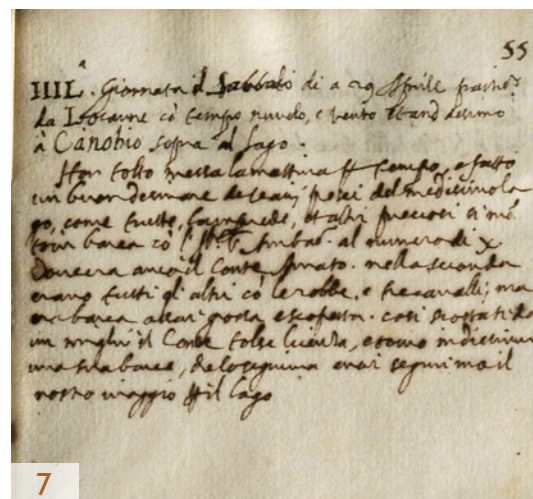 55
IIII.ª Giornata il Sabbato di a 29 Aprile
da Locarne cõ tempo nuvolo, e vento
à Canobio sopra al Lago.
tolto messa la mattina tempo, e fatto
un buon desinare de pesci del medesimo la
go, come trutte, et altri preciosi si mõ
tò in barca cõ Ambas. al numero di X
Dove era anco il Conte nella seconda
erano tutti gl'altri cõ le robbe, e tre cavalli, ma
era barca assai grossa e scoperta. così scostati da
un miglio il Conte tolse licenza, e tornò indietro in
una sua barca, che lo seguiva e noi seguimo il
nostro viaggio il Lago
7